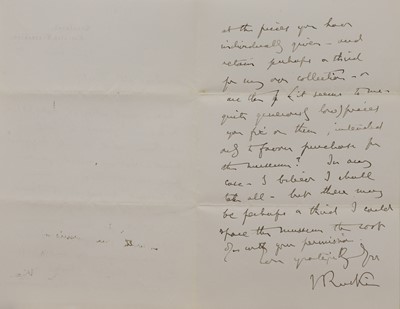 at the prices you have
individually given - and
retain perhaps a third
for my own collection - or
are these (it seems to me
quite generously low) prices
you fix on them, intended
only to favour purchase for
the museum? In any
case - I believe I shall
take all - but there may
be perhaps a third I could
spare the museum the cost
of with your permission
Ever gratefully Yrs
J Ruskin